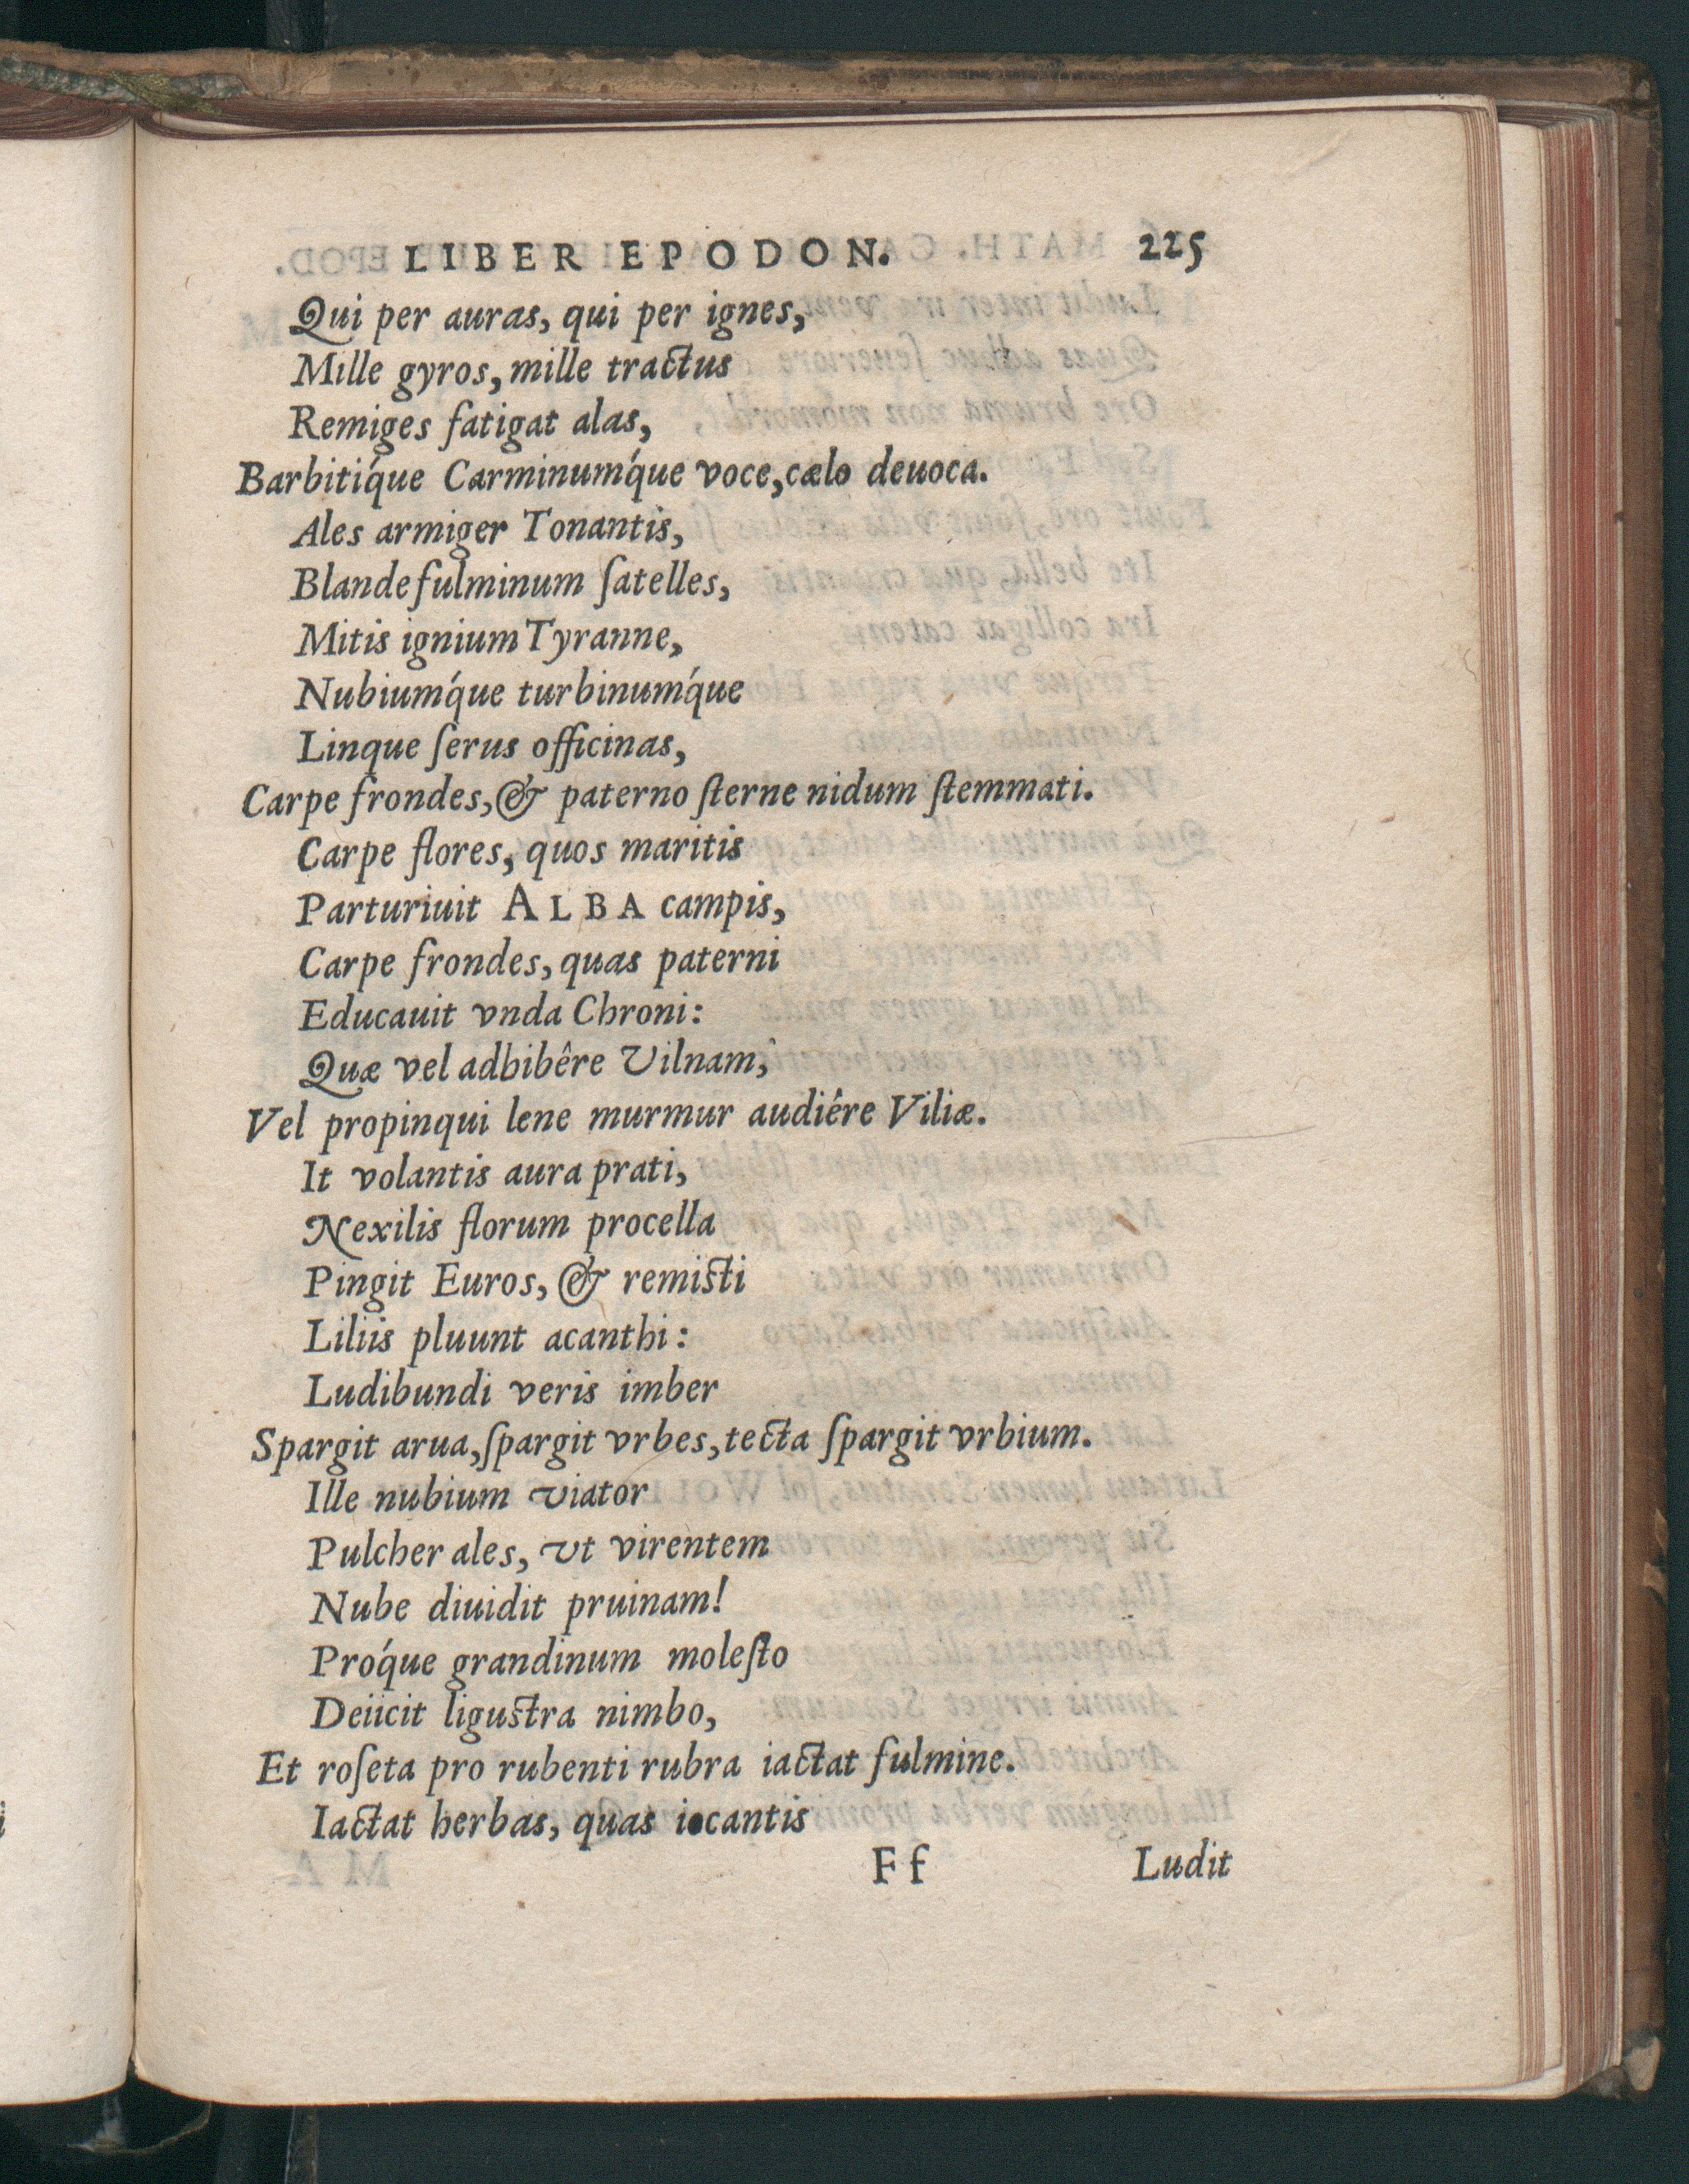 LIBER EPODON. 225
Qui per auras, qui per ignes,
Mille gyros, mille tractus
Remiges fatigat alas,
Barbitíque Carminumq́ue voce, cælo deuoca.
Ales armiger Tonantis,
Blande fulminum ſatelles,
Mitis ignium Tyranne,
Nubiumq́ue turbinumq́ue
Linque ſerus officinas,
Carpe frondes, & paterno ſterne nidum ſtemmati.
Carpe flores, quos maritis
Parturiuit ALBA campis,
Carpe frondes, quas paterni
Educauit vnda Chroni:
Quæ vel adbibêre Vilnam,
Vel propinqui lene murmur audiêre Viliæ.
It volantis aura prati,
Nexilis florum procella
Pingit Euros, & remisti
Liliis pluunt acanthi:
Ludibundi veris imber
Spargit arua, ſpargit vrbes, tecta ſpargit vrbium.
Ille nubium viator
Pulcher ales, vt virentem
Nube diuidit pruinam!
Proq́ue grandinum moleſto
Deiicit ligustra nimbo,
Et roſeta pro rubenti rubra iactat fulmine.
Iactat herbas, quas iocantis
Ff Ludit